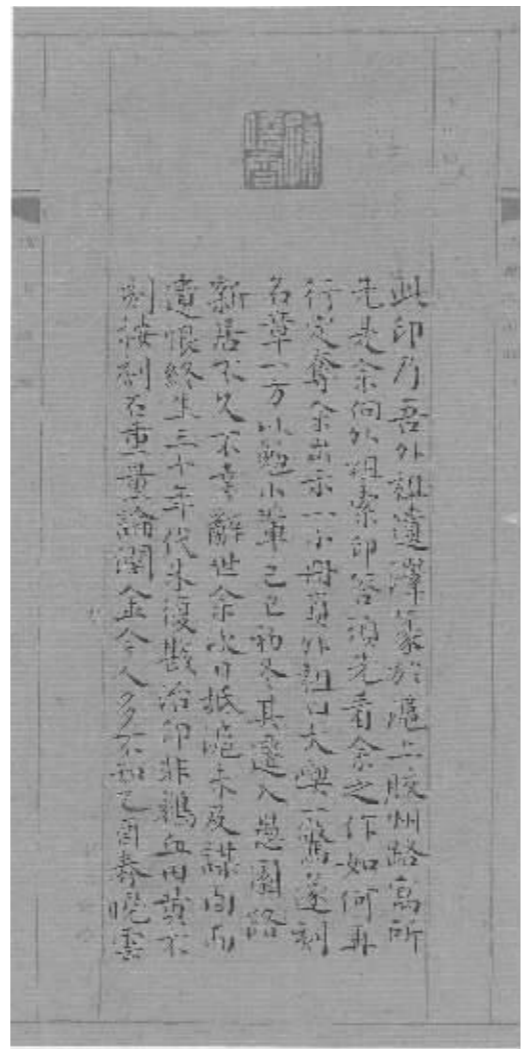 此印乃吾外祖遺澤篆於滬上膠州路寓所
先是余向外祖索印答須先看余之作如何再
行定奪余出示一小冊頁外祖曰大喫一驚遂刻
名章一方以勉小輩己巳初冬其遷入愚園路
新居不久不幸辭世余次日抵滬未及謀面而
遺恨終生三十年代朱復戡治印非鷄血田黃不
刻按刻石重量論潤金今人多不知乙酉春曉雲